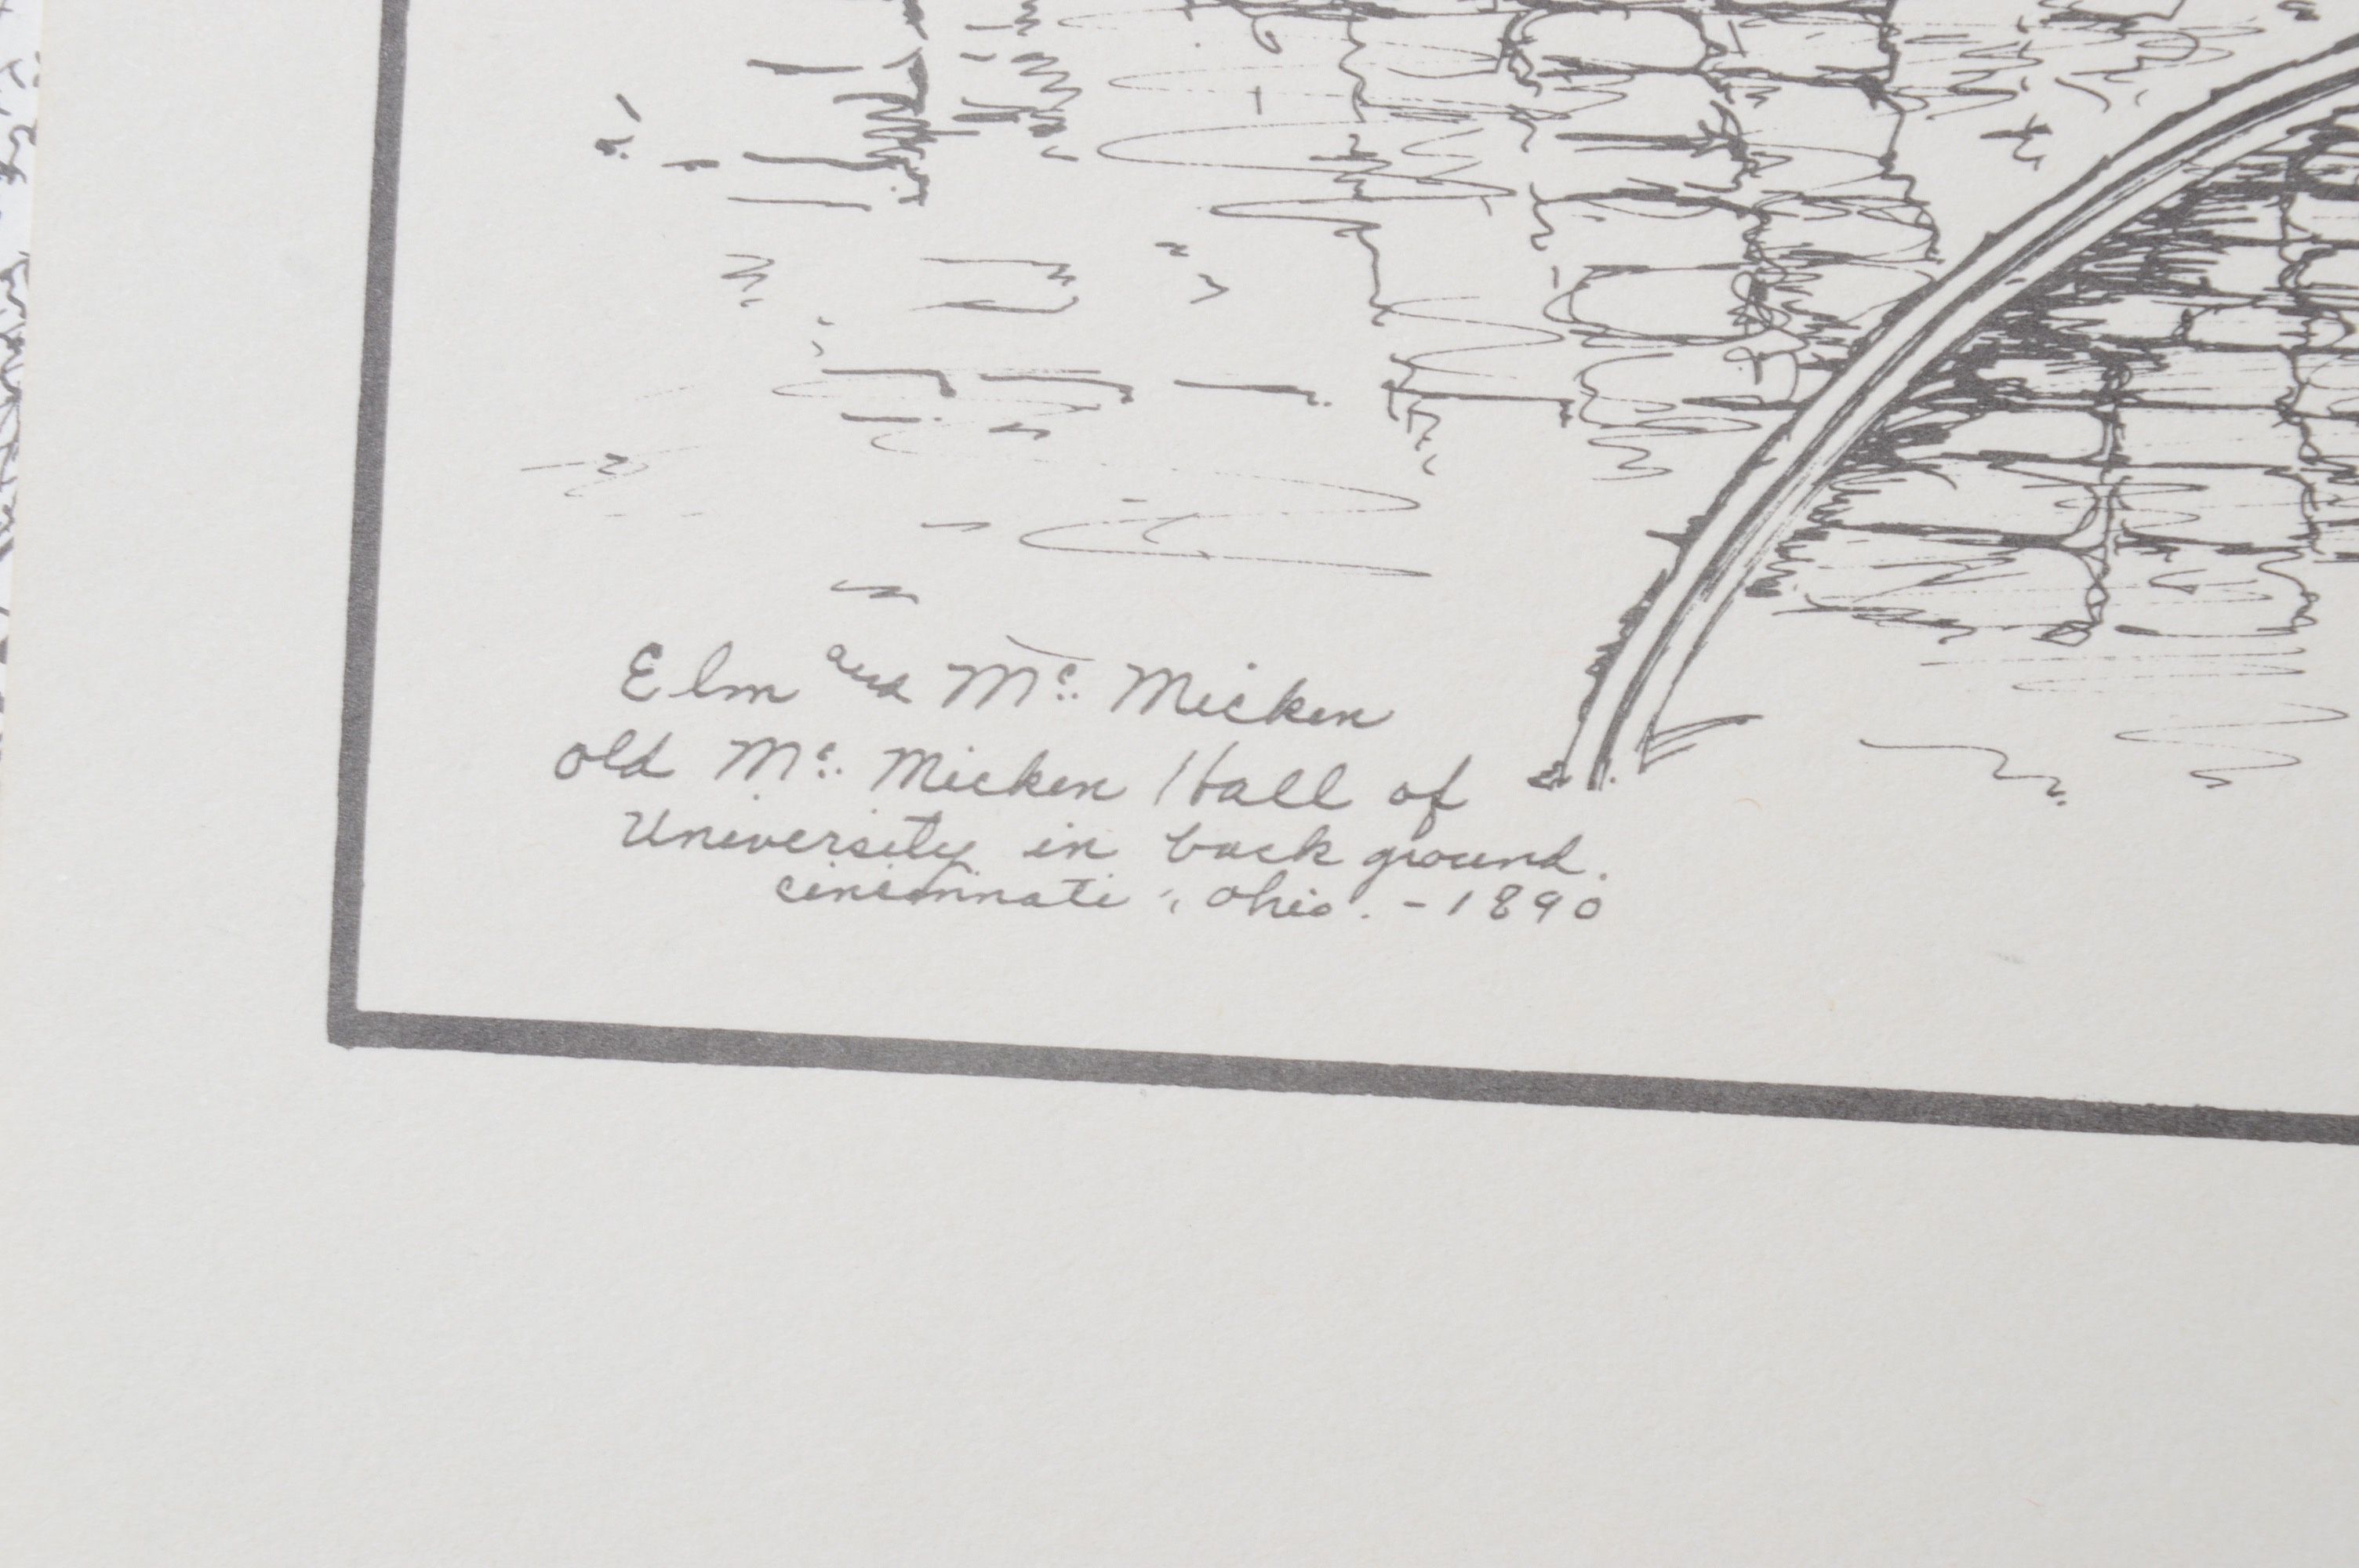 Elm and Mc. Micken
old Mc. Micken Hall of
University in back ground.
cincinnati, Ohio. - 1890